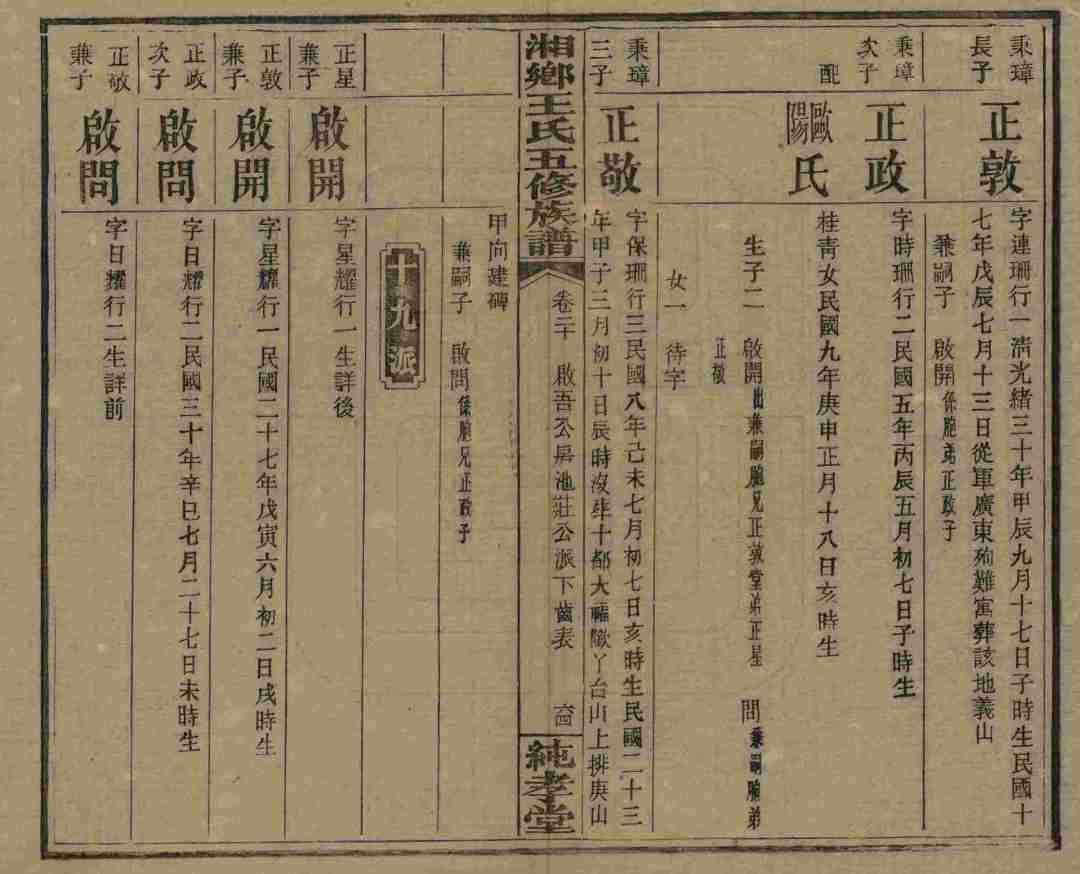 秉璋長子
正敦
字連珊行一清光緒三十年甲辰九月十七日子時生民國十
七年戊辰七月十三日從軍廣東殉難寓葬該地義山
兼嗣子 啟開係胞弟正政子
秉璋次子
正政
字時珊行二民國五年丙辰五月初七日子時生
配
歐陽氏
桂青女民國九年庚申正月十八日亥時生
生子二 啟開出兼嗣胞兄正敦堂弟正星 問兼嗣胞弟
正敬
女一 待字
秉璋三子
正敬
字保珊行三民國八年己未七月初七日亥時生民國二十三
年甲子三月初十日辰時沒葬十都大 丫台山上排庚山
湘鄉王氏五修族譜
卷二十 啟吾公房池莊公派下齒表
純孝堂
甲向建碑
兼嗣子 啟問係胞兄正政子
九派
正星兼子
啟開
字星耀行一生詳後
正敦兼子
啟開
字星耀行一民國二十七年戊寅六月初二日戌時生
正政次子
啟問
字日耀行二民國三十年辛巳七月二十七日未時生
正敬兼子
啟問
字日耀行二生詳前